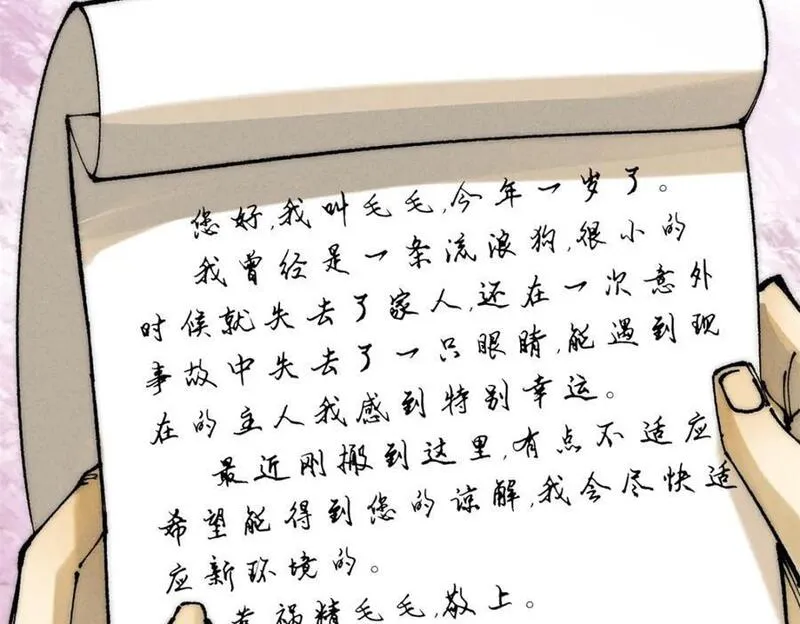 您好,我叫毛毛,今年一岁了。
我曾经是一条流浪狗,很小的
时候就失去了家人,还在一次意外
事故中失去了一只眼睛,能遇到现
在的主人我感到特别幸运。
最近刚搬到这里,有点不适应
希望能得到您的谅解,我会尽快适
应新环境的。
惹祸精毛毛,敬上。